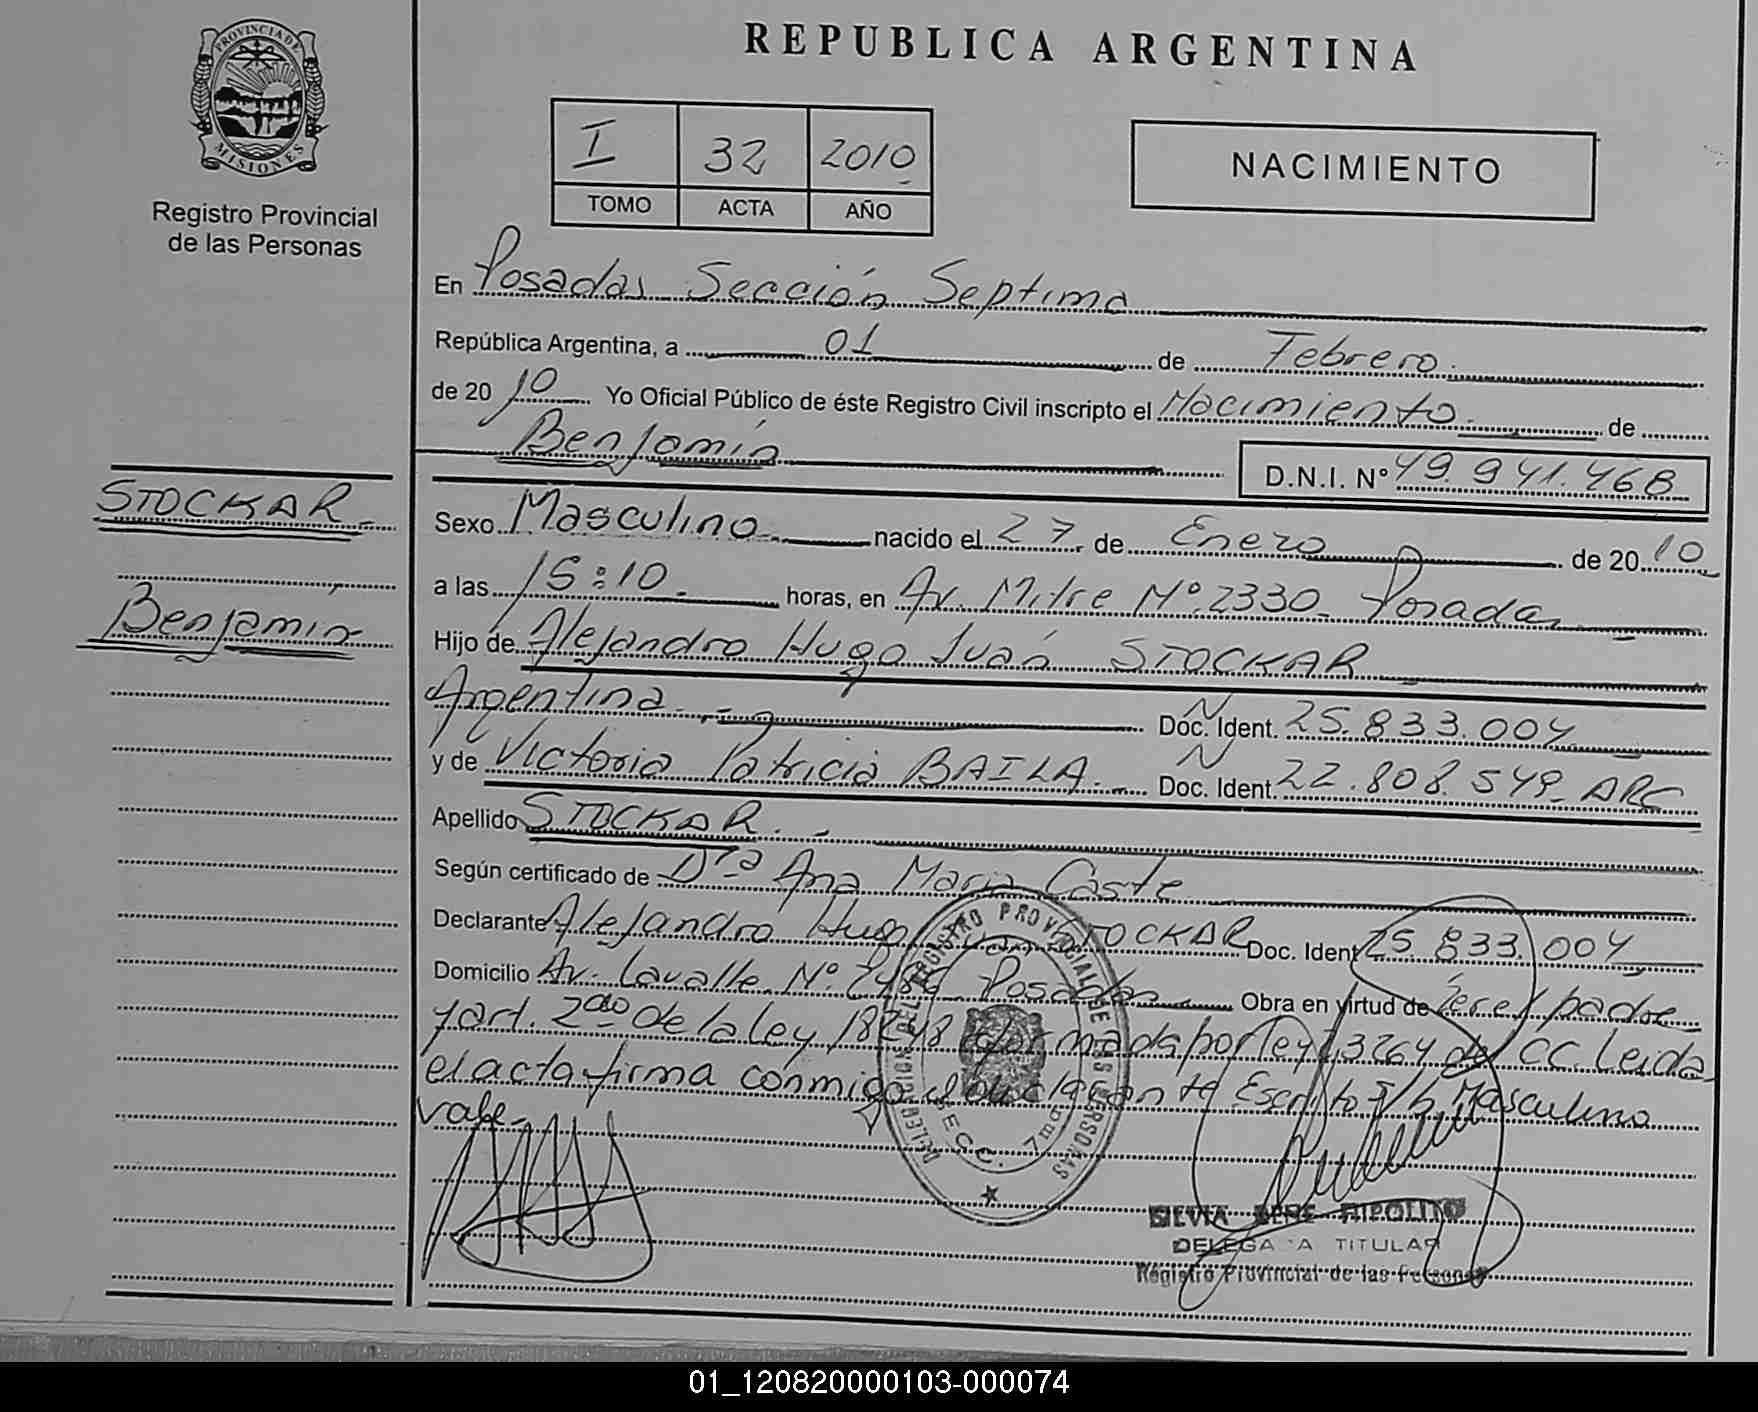 PROVINCIA DE
MISIONES
Registro Provincial
de las Personas
STOCKAR
Benjamín
REPUBLICA ARGENTINA
I 32 2010
TOMO ACTA AÑO
NACIMIENTO
En Posadas Sección Septima
República Argentina, a 01 de Febrero
de 2010 Yo Oficial Público de éste Registro Civil inscripto el Nacimiento de
Benjamín D.N.I. Nº 49.941.468
Sexo Masculino nacido el 27 de Enero de 2010
a las 15:10 horas, en Av. Mitre Nº 2330 Posadas
Hijo de Alejandro Hugo Iván STOCKAR
Argentina Doc. N Ident. 25.833.004
y de Victoria Patricia BAILA Doc. N Ident. 22.808.549 ARG
Apellido STOCKAR
Según certificado de Dra Ana Maria Caste
Declarante Alejandro Hugo Iván STOCKAR Doc. Ident 25.833.004
Domicilio Av. Lavalle Nº Posadas Obra en virtud de ser el padre
y art. 2do de la ley 18248 por ley 23264 del CC. Leida
el acta firma conmigo el declarante Escrito s/b Masculino
vale
DELEGACION DEL REGISTRO PROVINCIAL DE LAS PERSONAS
SECC. 7ma
SILVIA HIPOLITO
DELEGADA TITULAR
Registro Provincial de las Personas
01_120820000103-000074